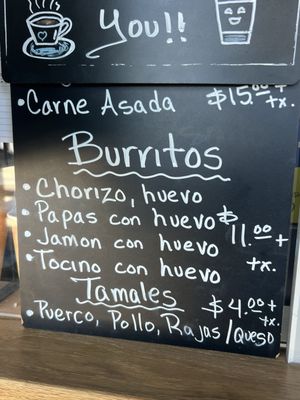 You!!
• Carne Asada $15.00 + tx.
Burritos
• Chorizo, huevo
• Papas con huevo
• Jamon con huevo
• Tocino con huevo
$11.00 + tx.
Tamales
$4.00 + tx.
• Puerco, Pollo, Rajas/Queso